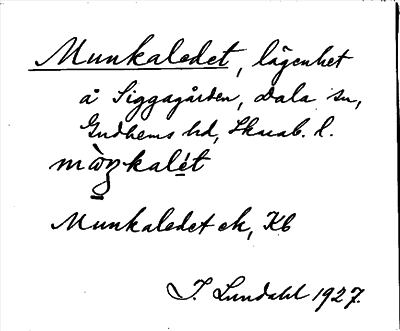 Munkaledet, lägenhet
å Siggagården, Dala sn,
Gudhems hd, Skarab. l.
Munkaledet ek, Kb
I. Lundahl 1927.